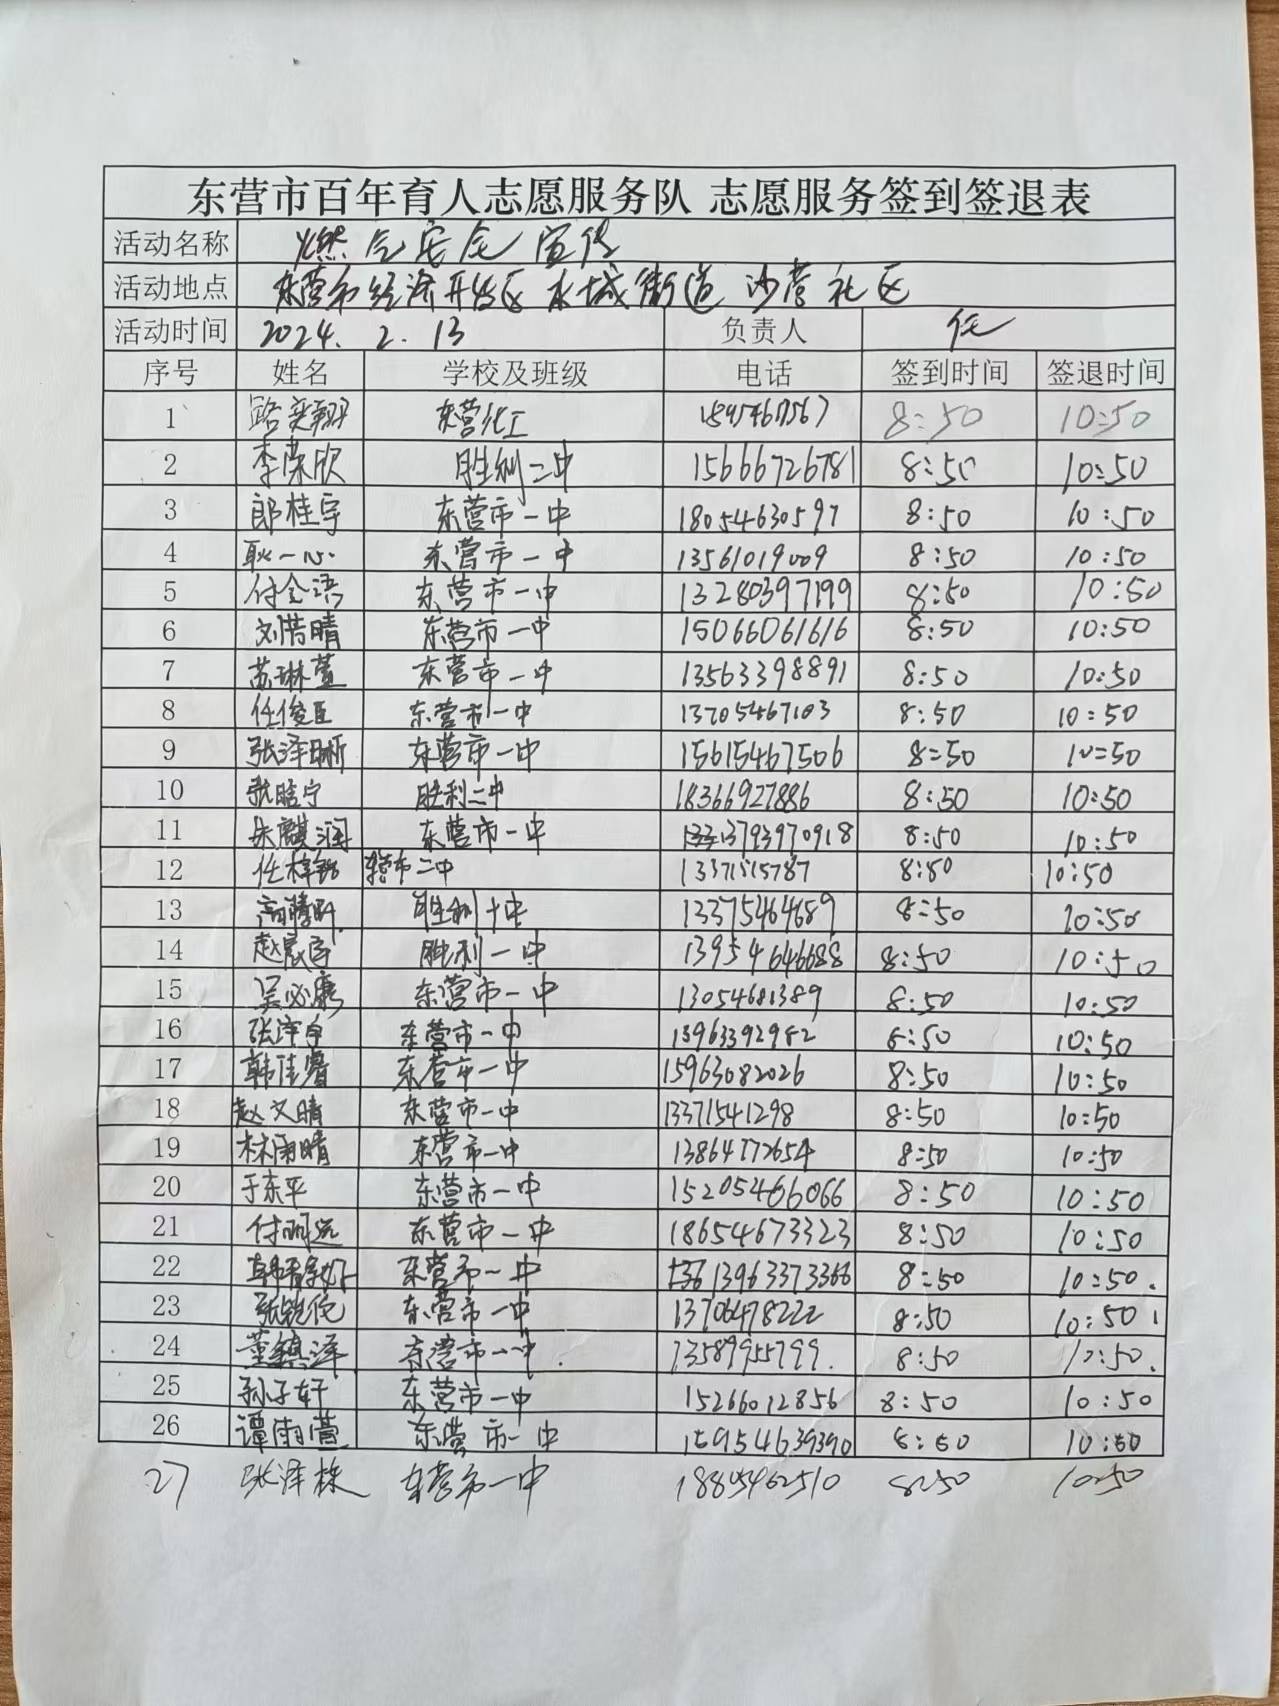 东营市百年育人志愿服务队 志愿服务签到签退表
活动名称 燃气安全宣传
活动地点 东营市经济开发区水城街道沙营社区
活动时间 2024.2.13 负责人 任
序号 姓名 学校及班级 电话 签到时间 签退时间
1 路奕翔 东营化工 8:50 10:50
2 李荣欣 胜利二中 15666726781 8:50 10:50
3 郎桂宇 东营市一中 18054630597 8:50 10:50
4 耿一心 东营市一中 13561019009 8:50 10:50
5 付全语 东营市一中 13280397199 8:50 10:50
6 刘惜晴 东营市一中 15066061616 8:50 10:50
7 苏琳萱 东营市一中 13563398891 8:50 10:50
8 任俊臣 东营市一中 13705467103 8:50 10:50
9 张泽晰 东营市一中 15615467506 8:50 10:50
10 张晗宁 胜利二中 18366927886 8:50 10:50
11 朱麒润 东营市一中 13793970918 8:50 10:50
12 任梓铭 东营市二中 13371515787 8:50 10:50
13 胜利十中 13375464689 8:50 10:50
14 赵宸宇 胜利一中 13954646688 8:50 10:50
15 吴必康 东营市一中 13054681389 8:50 10:50
16 张泽宇 东营市一中 13963392982 8:50 10:50
17 韩佳睿 东营市一中 15963082026 8:50 10:50
18 赵文晴 东营市一中 13371541298 8:50 10:50
19 林雨晴 东营市一中 13864772654 8:50 10:50
20 于东平 东营市一中 15205466066 8:50 10:50
21 付明远 东营市一中 18654673323 8:50 10:50
22 东营市一中 13963373366 8:50 10:50.
23 张锐伦 东营市一中 13706478222 8:50 10:50
24 董镇泽 东营市一中. 13589955799. 8:50 10:50.
25 孙子轩 东营市一中 15266012856 8:50 10:50
26 谭雨萱 东营市一中 15954639390 8:50 10:50
27 张泽株 东营市一中 18805462510 8:50 10:50